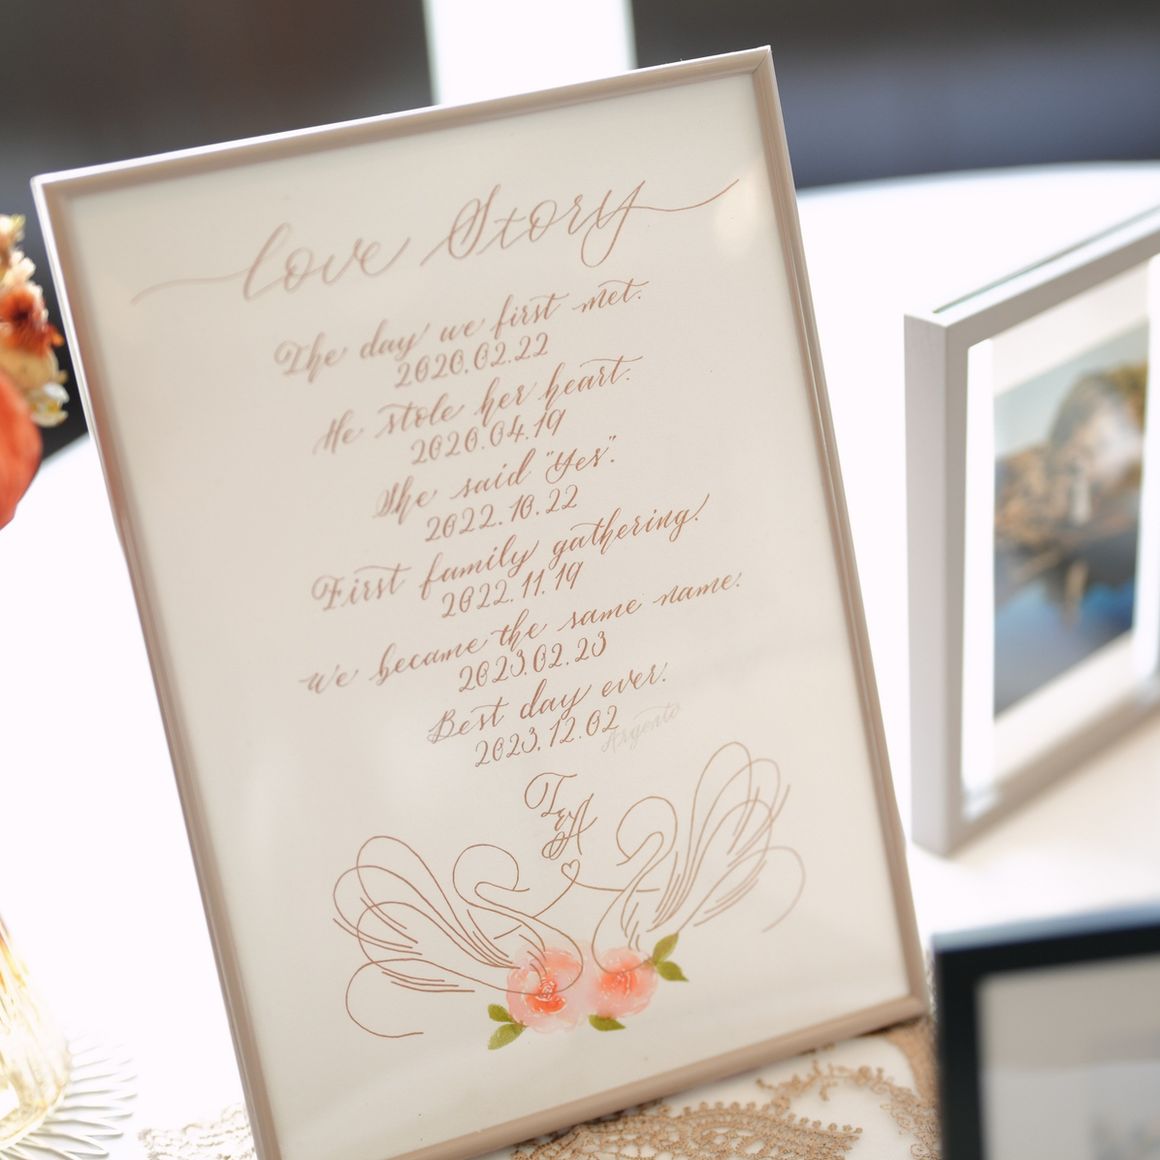 Love Story
The day we first met.
2020.02.22
He stole her heart.
2020.04.19
She said "Yes".
2022.10.22
First family gathering.
2022.11.19
We became the same name.
2023.02.23
Best day ever.
2023.12.02
Argento
T
&A